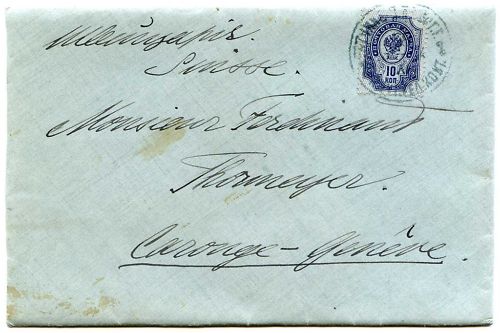 Швейцарія.
Suisse.
Monsieur Ferdinand
Thormeyer.
Carouge-Genève.
10
КОП